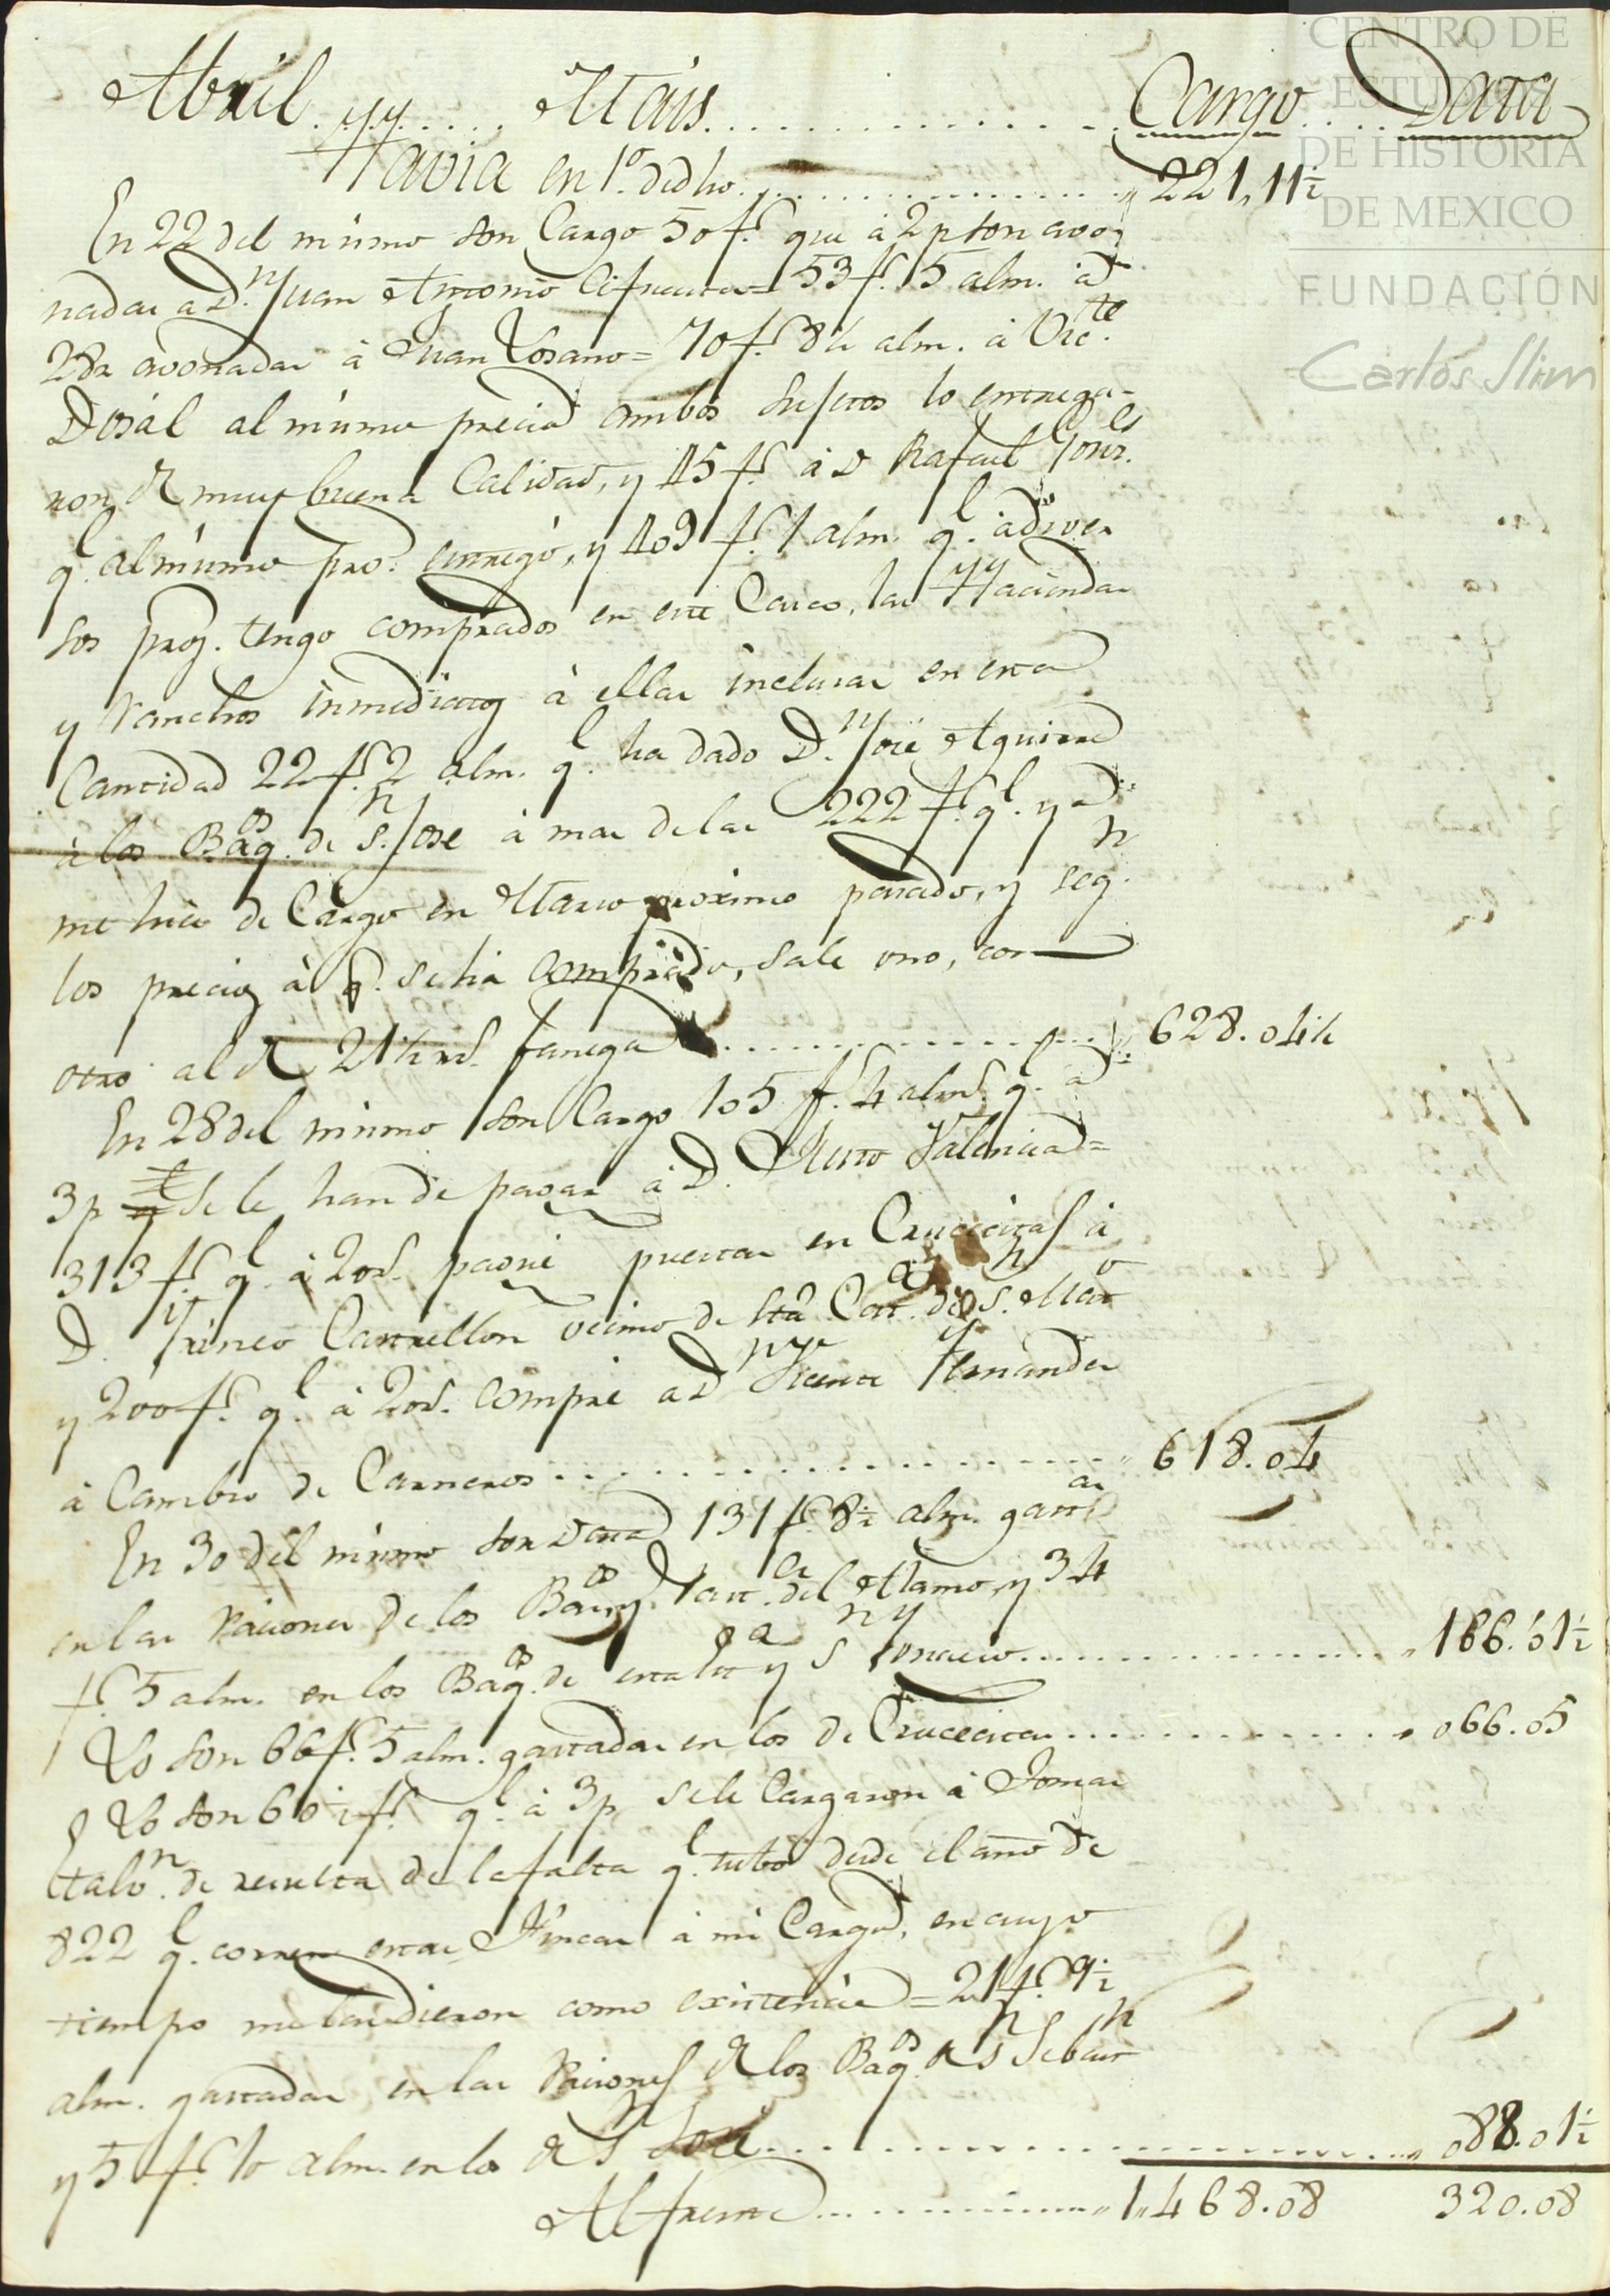 Abril....... Mais............... Cargo.... Data
Havia en 1.º de dho............ 221,, 11½
En 22 del mismo son Cargo 50 f.s que a 2 p son avo-
nadas a D.n Juan Antonio Cifuentes = 53 f.s 5 alm. a
28 r avonadas à Juan Losano = 70 f.s 8½ alm. à Vic.te
Dosál al mismo precio ambos sujetos lo entrega-
ron de muy buena Calidad, y 45 f.s à D Rafael Gonz.les
q.e al mismo pro. entregó, y 409 f.s 1 alm. q.e à diver
sos pros. tengo comprados en este Casco, las Haciendas
y ranchos inmediatos à ellas inclusas en esta
Cantidad 22 f.s 2 alm. q.e ha dado D.n José Aguirre
à los Baq.os de S.n Jose à mas de las 222 f.s q.e ya
me hice de Cargo en Marzo proximo pasado, y seg.n
los precios à q.e se ha comprado, sale uno, con
otro al de 21½ r.s fanega............ 628.04½
En 28 del mismo son Cargo 105 f.s 4 alms. q.e a
3 p se le han de pagar à D. Valencia =
313 f.s q.e à 20 r.s pagué puestas en Crucecitas à
D. Irineo Castrellon vecino de
y 200 f.s q.e à 20 r.s compré a D Vicente Hernandez
à Cambio de Carneros............ 618.04
En 30 del mismo son Data 131 f.s 8½ alm. gast.as
en las raciones de los Baq.os del Alamo, y 34
f.s 5 alm. en los Baq.os de esta y S Ignacio............ 166.01½
Yo son 66 f.s 5 alm. gastadas en los de Crucecitas............ 066.05
Yo son 60½ f.s q.e à 3 p se le Cargaron à Tomas
de resulta de la falta q.e tubo desde el año de
822 q.e corren estas Fincas à mi Cargo, en cuyo
tiempo me las dieron como existencia = 21 f.s 9½
alm. gastadas en las raciones de los Baq.os de S.n Sebast.n
y 5 f.s 10 alm. en los de S.n José............ 088.01½
Al frente............ 1,,468.08 320.08
CENTRO DE
ESTUDIOS
DE HISTORIA
DE MEXICO
FUNDACIÓN
Carlos Slim